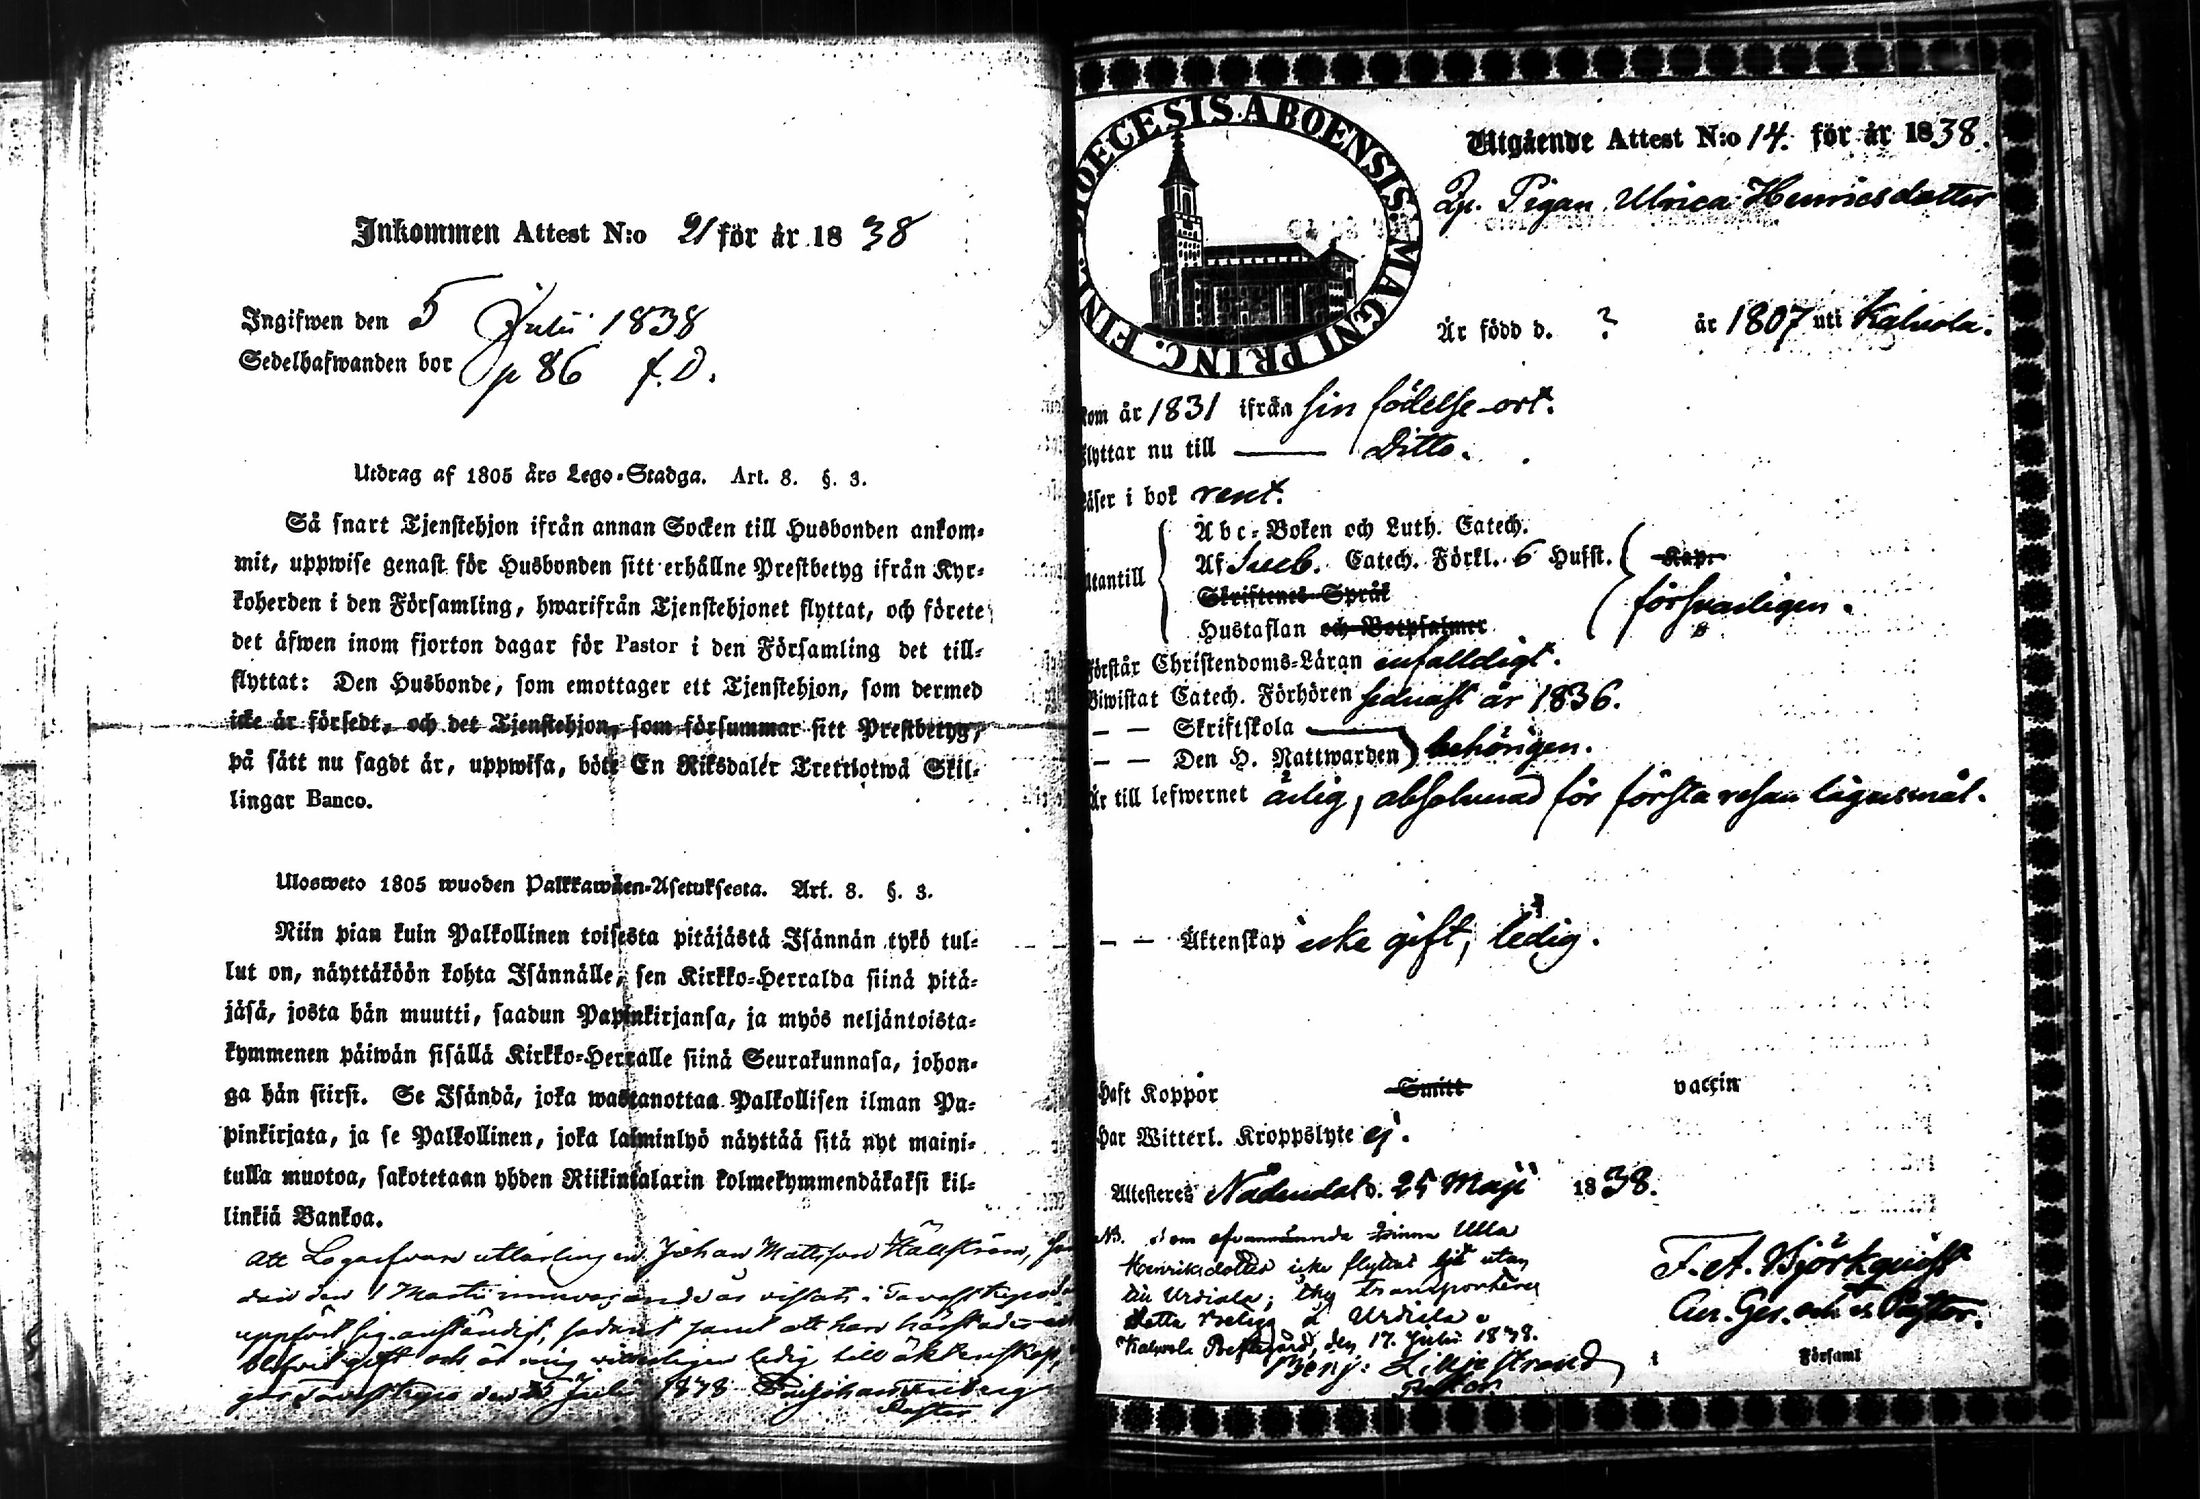 Inkommen Attest N:o 21 för år 1838
Ingifwen den 5 Julii 1838
Sedelhafwanden bor p 86 f. D.
Utdrag af 1805 års Lego-Stadga. Art. 8. §. 3.
Så snart Tjenstehjon ifrån annan Socken till Husbonden ankom-
mit, uppwise genast för Husbonden sitt erhållne Prestbetyg ifrån Kyr-
koherden i den Församling, hwarifrån Tjenstehjonet flyttat, och förete
det äfwen inom fjorton dagar för Pastor i den Församling det till-
flyttat: Den Husbonde, som emottager ett Tjenstehjon, som dermed
icke är försedt, och det Tjenstehjon, som försummar sitt Prestbetyg,
på sätt nu sagdt är, uppwisa, böte En Riksdaler Trettiotwå Skil-
lingar Banco.
Ulosweto 1805 wuoden Palkkawäen-Asetuksesta. Art. 8. §. 3.
Niin pian kuin Palkollinen toisesta pitäjästä Isännän tykö tul-
lut on, näyttäköön kohta Isännälle, sen Kirkko-Herralda siinä pitä-
jäsä, josta hän muutti, saadun Papinkirjansa, ja myös neljäntoista-
kymmenen päiwän sisällä Kirkko-Herralle siinä Seurakunnasa, johon-
ga hän siirsi. Se Isändä, joka wastanottaa Palkollisen ilman Pa-
pinkirjata, ja se Palkollinen, joka laiminlyö näyttää sitä nyt maini-
tulla muotoa, sakotetaan yhden Riikintalarin kolmekymmendäkaksi kil-
linkiä Bankoa.
Att Johan Mattsson Hällström,
den 1 Martii är vistats i
uppfört sig anständigt, samt att han
gift och är ledig till äktenskap,
den Juli 1838
Pastor
DIOECESIS ABOENSIS MAGNI PRINC. FINL.
Utgående Attest N:o 14. för år 1838.
Pigan Ulrica Henricsdotter
Är född d. ? år 1807 uti Kalvola.
kom år 1831 ifrån sin födelse-ort.
flyttar nu till — Ditto.
Läser i bok rent.
Utantill
Abc-Boken och Luth. Catech.
Af Sveb. Catech. Förkl. 6 Hufst. Kap.
Skriftenes Språk
försvarligen.
Hustaflan och Botpsalmer
Förstår Christendoms-Läran enfalldigt.
Biwistat Catech. Förhören senast år 1836.
— — Skriftskola —
— — Den H. Nattwarden behörigen.
Är till lefwernet ärlig, absolverad för första resan lägersmål.
— — Äktenskap icke gift, ledig.
Haft Koppor Smitt vaccin
Har Witterl. Kroppslyte ej.
Attesteres Nådendal d. 25 Maji 1838.
NB. som ofvannämnde Qvinna Ulla
Henriksdotter icke flyttat hit utan
till Urdiala; thy transporteres
detta betyg å Urdiala.
Kalvola Prestegård, den 17. Julii 1838.
Benj: Liljestrand
Pastor
F. A. Björkqvist
i Församl